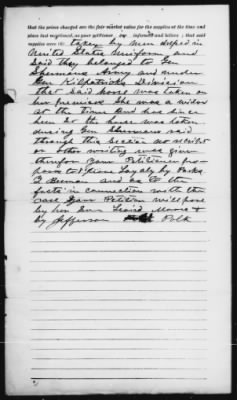 that the prices charged are the fair market value for the supplies at the time and
place last mentioned, as your petitioner is informed and believes; that said
supplies were taken by men dressed in
United States Uniform and
Said they belonged to Gen
Shermans Army and under
Gen Kilpatricks Division
that Said horse was taken on
her premises She was a widow
at the time and has since
been the horse was taken
during Gen Shermans raid
through this Section no receipt
or other writing was given
therefor your Petitioner pro-
poses to prove Loyalty by Parks
and as to the
facts in connection with the
case your Petition will prove
by her Son Moore &
by Jefferson Polk